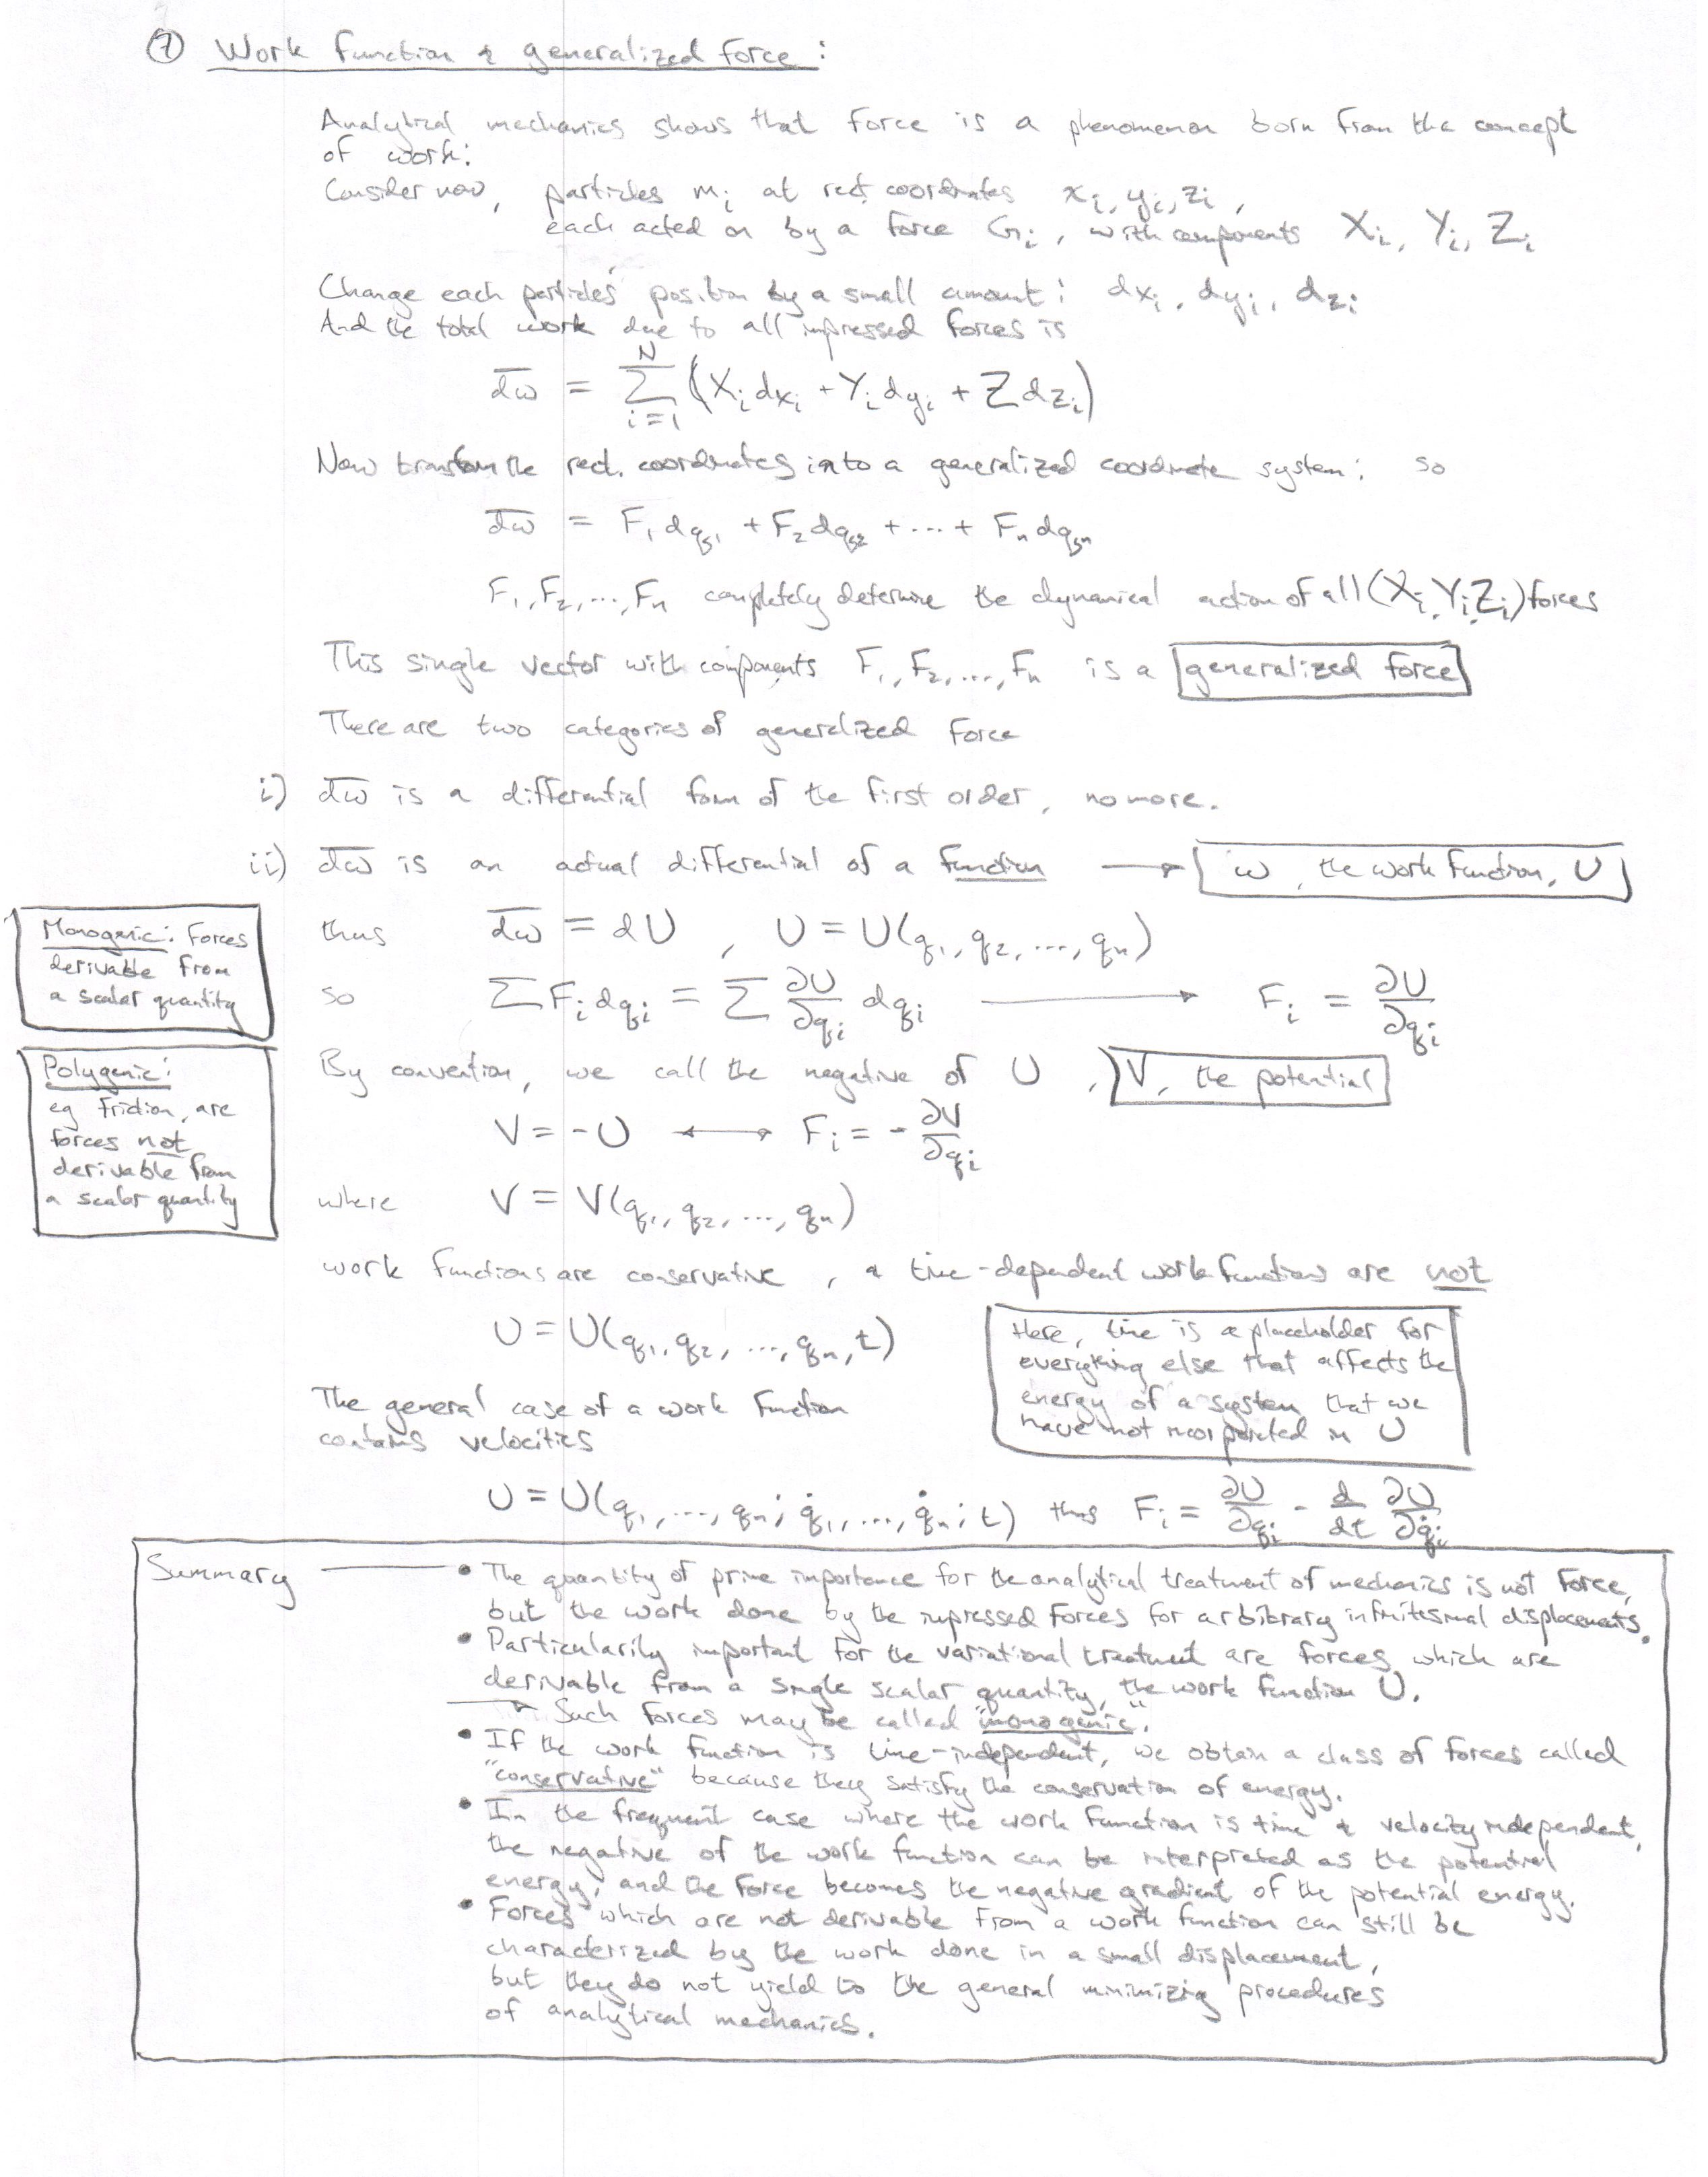 ⑦ Work function & generalized force:
Analytical mechanics shows that force is a phenomenon born from the concept
of work:
Consider now, particles mᵢ at rect coordinates xᵢ, yᵢ, zᵢ,
each acted on by a force Gᵢ, with components Xᵢ, Yᵢ, Zᵢ
Change each particles' position by a small amount: dxᵢ, dyᵢ, dzᵢ
And the total work due to all impressed forces is
d̅w̅ = Σᵢ₌₁ᴺ (Xᵢdxᵢ + Yᵢdyᵢ + Zdzᵢ)
Now transform the rect. coordinates into a generalized coordinate system: so
d̅w̅ = F₁dq₁ + F₂dq₂ + ... + Fₙdqₙ
F₁, F₂, ..., Fₙ completely determine the dynamical action of all (Xᵢ, Yᵢ, Zᵢ) forces
This single vector with components F₁, F₂, ..., Fₙ is a generalized force
There are two categories of generalized force
i) d̅w̅ is a differential form of the first order, no more.
ii) d̅w̅ is an actual differential of a function → w, the work function, U
Monogenic: Forces
derivable from
a scalar quantity
thus d̅w̅ = dU, U = U(q₁, q₂, ..., qₙ)
so ΣFᵢdqᵢ = Σ ∂U/∂qᵢ dqᵢ → Fᵢ = ∂U/∂qᵢ
Polygenic:
eg Friction, are
forces not
derivable from
a scalar quantity
By convention, we call the negative of U, V, the potential
V = -U ↔ Fᵢ = - ∂V/∂qᵢ
where V = V(q₁, q₂, ..., qₙ)
work functions are conservative, & time-dependent work functions are not
U = U(q₁, q₂, ..., qₙ, t)
Here, time is a placeholder for
everything else that affects the
energy of a system that we
have not incorporated in U
The general case of a work function
contains velocities
U = U(q₁, ..., qₙ; q̇₁, ..., q̇ₙ; t) thus Fᵢ = ∂U/∂qᵢ - d/dt ∂U/∂q̇ᵢ
Summary — • The quantity of prime importance for the analytical treatment of mechanics is not force,
but the work done by the impressed forces for arbitrary infinitesmal displacements.
• Particularily important for the variational treatment are forces which are
derivable from a single scalar quantity, the work function U.
→ Such forces may be called "monogenic".
• If the work function is time-independent, we obtain a class of forces called
"conservative" because they satisfy the conservation of energy.
• In the frequent case where the work function is time & velocity independent,
the negative of the work function can be interpreted as the potential
energy, and the force becomes the negative gradient of the potential energy.
• Forces which are not derivable from a work function can still be
characterized by the work done in a small displacement,
but they do not yield to the general minimizing procedures
of analytical mechanics.